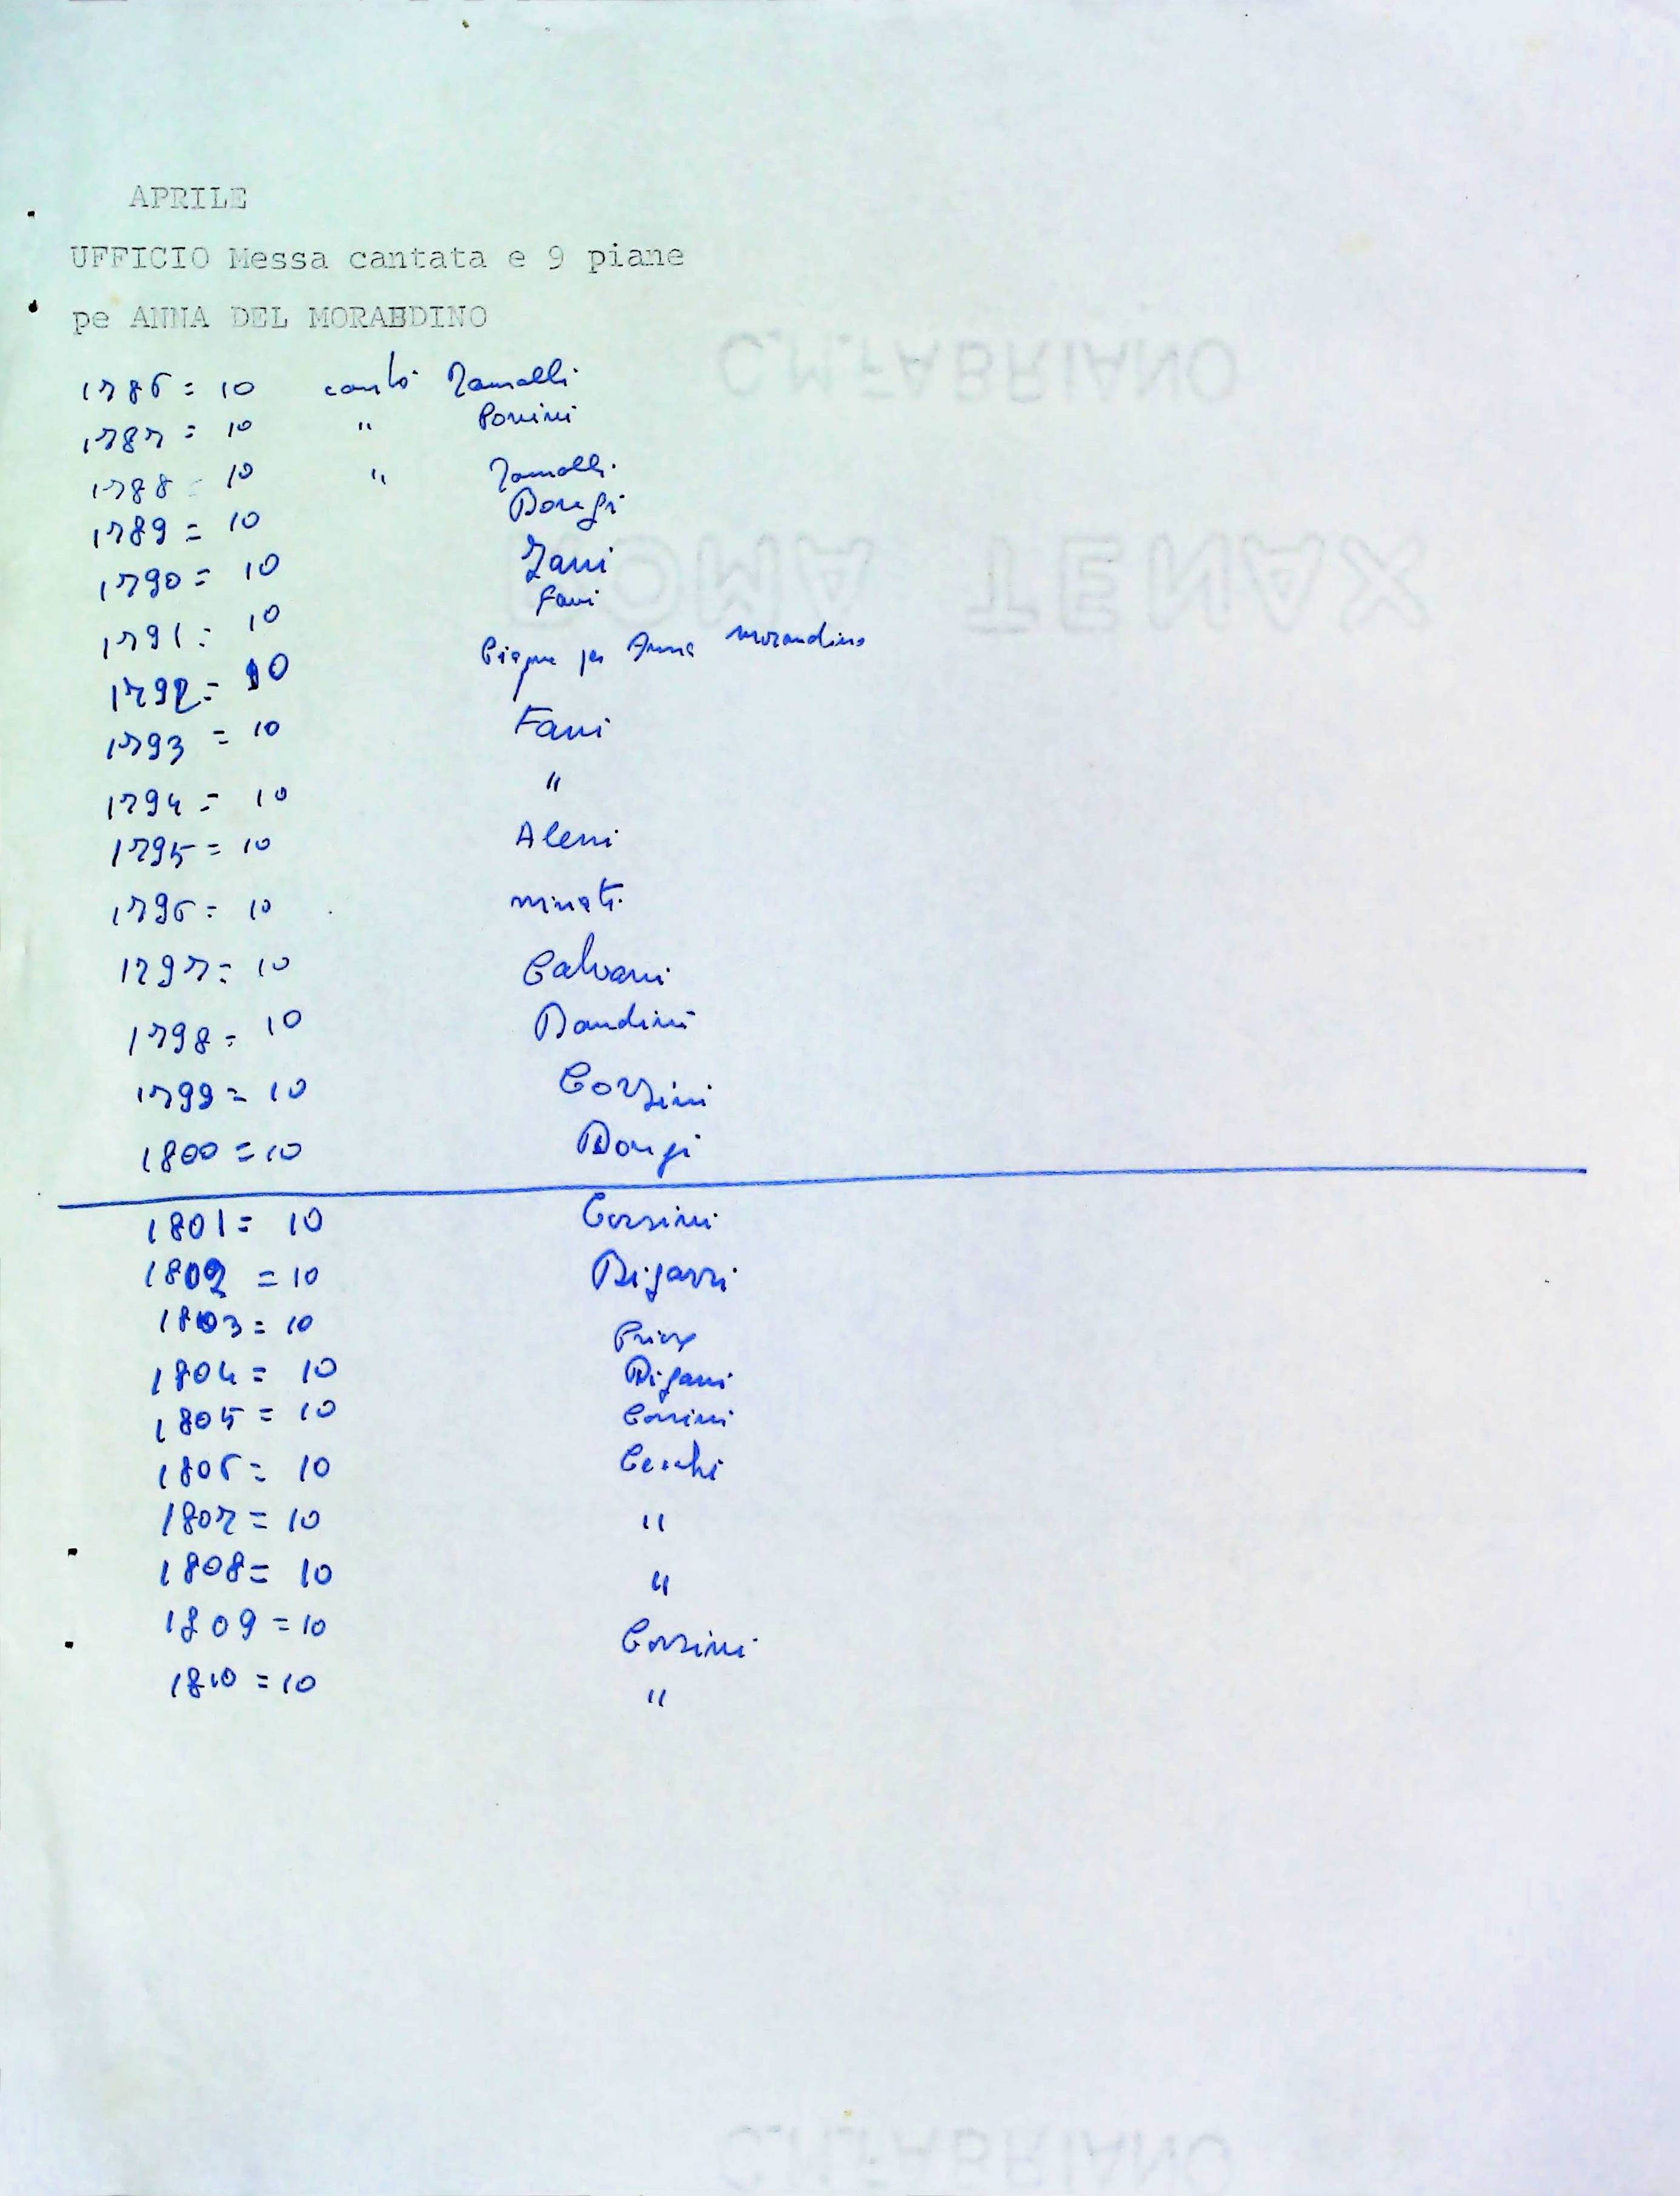 APRILE
UFFICIO Messa cantata e 9 piane
pe ANNA DEL MORANDINO
1786 = 10 cantò Zamolli
1787 = 10 " Bonini
1788 = 10 " Zamolli
1789 = 10 Dongi
1790 = 10 Zani
1791 = 10 Fani
1792 = 10 per Anna Morandino
1793 = 10 Fani
1794 = 10 "
1795 = 10 Aleni
1796 = 10 Minati
1797 = 10 Calvani
1798 = 10 Bandini
1799 = 10 Corsini
1800 = 10 Dongi
1801 = 10 Corsini
1802 = 10 Bigazzi
1803 = 10
1804 = 10 Bigazzi
1805 = 10 Corsini
1806 = 10 Cecchi
1807 = 10 "
1808 = 10 "
1809 = 10 Corsini
1810 = 10 "
C.M.FABRIANO
ROMA TENAX
C.M.FABRIANO